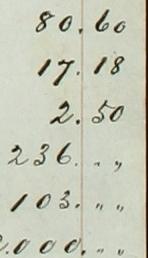 80.60
17.18
2.50
236. " "
103. " "
.000. " "